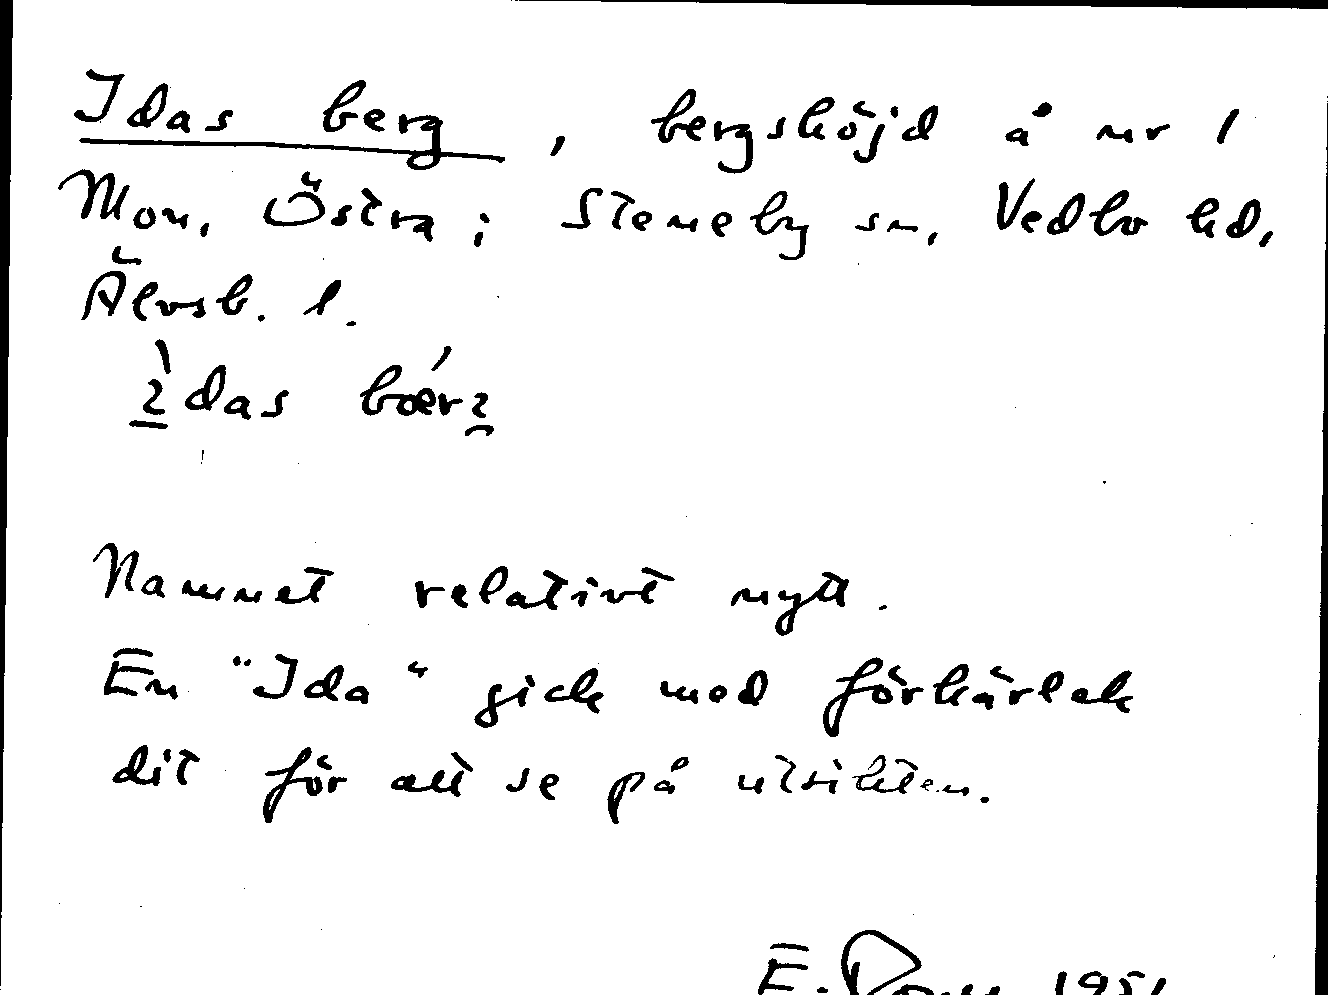 Idas berg, bergshöjd å nr 1
Mon, Östra; Steneby sn, Vedbo hd,
Älvsb. l.
En "Ida" gick med förkärlek
dit för att se på utsikten.
Namnet relativt nytt.
E. 1951